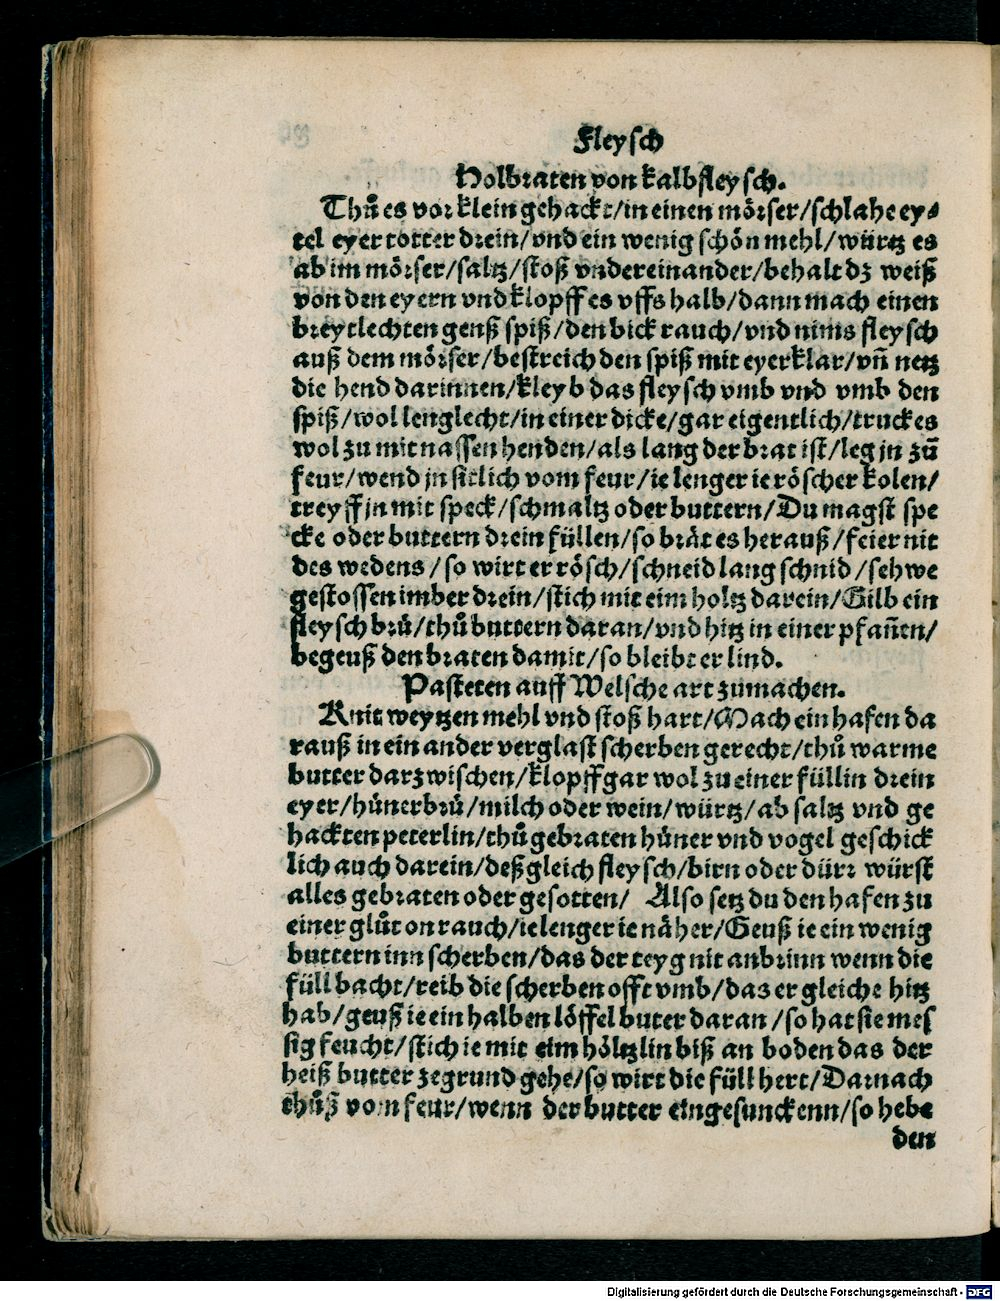 Fleysch
Holbraten von kalbfleysch.
Thů es vor klein gehackt/in einen mörser/schlahe ey⸗
tel eyer totter drein/vnd ein wenig schön mehl/würtz es
ab im mörser/saltz/stoß vndereinander/behalt dz weiß
von den eyern vnd klopff es vffs halb/dann mach einen
breytlechten genß spiß/den bick rauch/vnd nims fleysch
auß dem mörser/bestreich den spiß mit eyerklar/vñ netz
die hend darinnen/kleyb das fleysch vmb vnd vmb den
spiß/wol lenglecht/in einer dicke/gar eigentlich/truck es
wol zu mit nassen henden/als lang der brat ist/leg jn zũ
feur/wend jn sitlich vom feur/ie lenger ie röscher kolen/
treyff jn mit speck/schmaltz oder buttern/Du magst spe
cke oder buttern drein füllen/so brät es herauß/feier nit
des wedens/so wirt er rösch/schneid lang schnid/sehwe
gestossen imber drein/stich mit eim holtz darein/Gilb ein
fleysch brů/thů buttern daran/vnd hitz in einer pfañen/
begeuß den braten damit/so bleibt er lind.
Pasteten auff Welsche art zumachen.
Knit weytzen mehl vnd stoß hart/Mach ein hafen da
rauß in ein ander verglast scherben gerecht/thů warme
butter darzwischen/klopff gar wol zu einer füllin drein
eyer/hůnerbrů/milch oder wein/würtz/ab saltz vnd ge
hackten peterlin/thů gebraten hůner vnd vogel geschick
lich auch darein/deßgleich fleysch/birn oder dürr würst
alles gebraten oder gesotten/ Also setz du den hafen zu
einer glůt on rauch/ie lenger ie näher/Geuß ie ein wenig
buttern inn scherben/das der teyg nit anbrinn wenn die
füll bacht/reib die scherben offt vmb/das er gleiche hitz
hab/geuß ie ein halben löffel buter daran/so hat sie mes
sig feucht/stich ie mit eim höltzlin biß an boden das der
heiß butter zegrund gehe/so wirt die füll hert/Darnach
thůß vom feur/wenn der butter eingesunckenn/so hebe
den
Digitalisierung gefördert durch die Deutsche Forschungsgemeinschaft - DFG